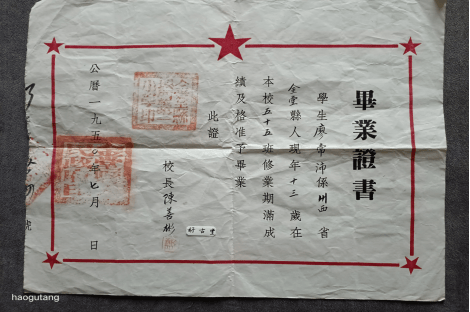 畢業證書
學生廖常沛係川西省
金堂縣人現年十三歲在
本校五十五班修業期滿成
績及格准予畢業
此證
校長陳善彬
公曆一九五〇年七月 日
haogutang